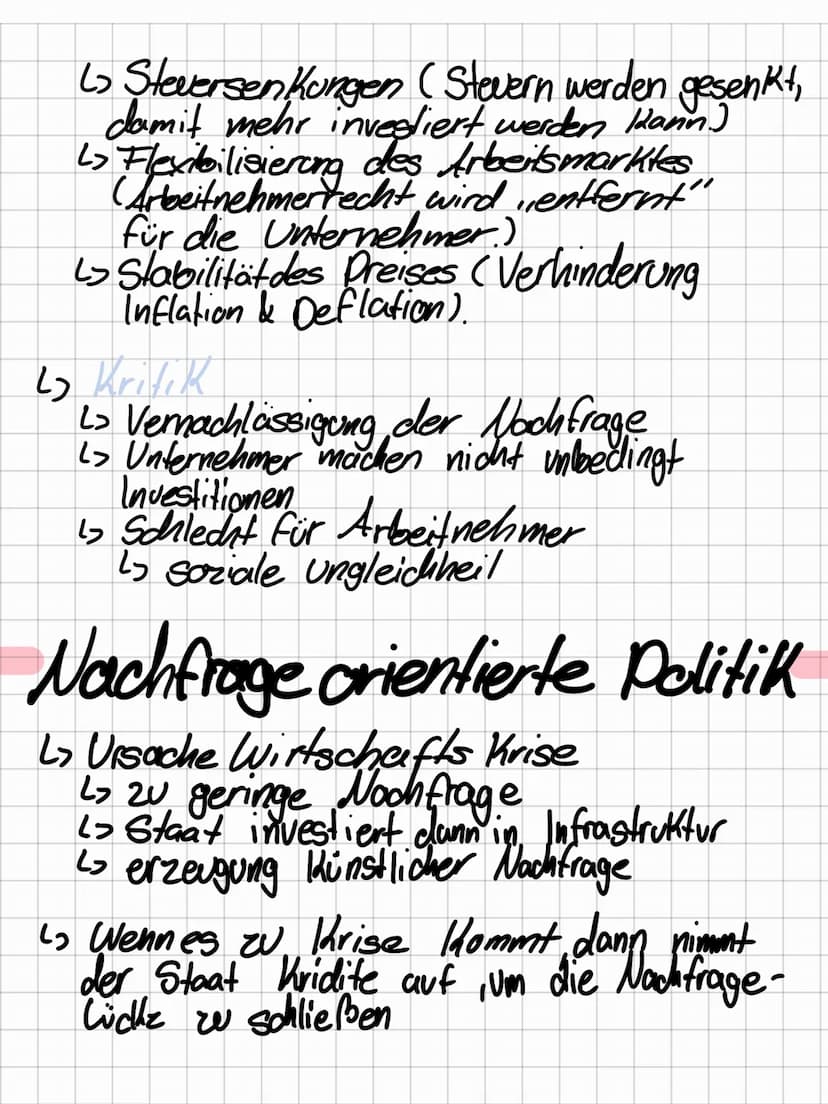 ↳ Steuersenkungen (Steuern werden gesenkt,
damit mehr investiert werden kann.)
↳ Flexibilisierung des Arbeitsmarktes
(Arbeitnehmerrecht wird „entfernt"
für die Unternehmer.)
↳ Stabilität des Preises (Verhinderung
Inflation & Deflation).
↳ Kritik
↳ Vernachlässigung der Nachfrage
↳ Unternehmer machen nicht unbedingt
Investitionen
↳ Schlecht für Arbeitnehmer
↳ soziale ungleichheit
Nachfrage orientierte Politik
↳ Ursache Wirtschafts Krise
↳ zu geringe Nachfrage
↳ Staat investiert dann in Infrastruktur
↳ erzeugung Künstlicher Nachfrage
↳ Wenn es zu Krise kommt, dann nimmt
der Staat Kridite auf, um die Nachfrage-
lücke zu schließen